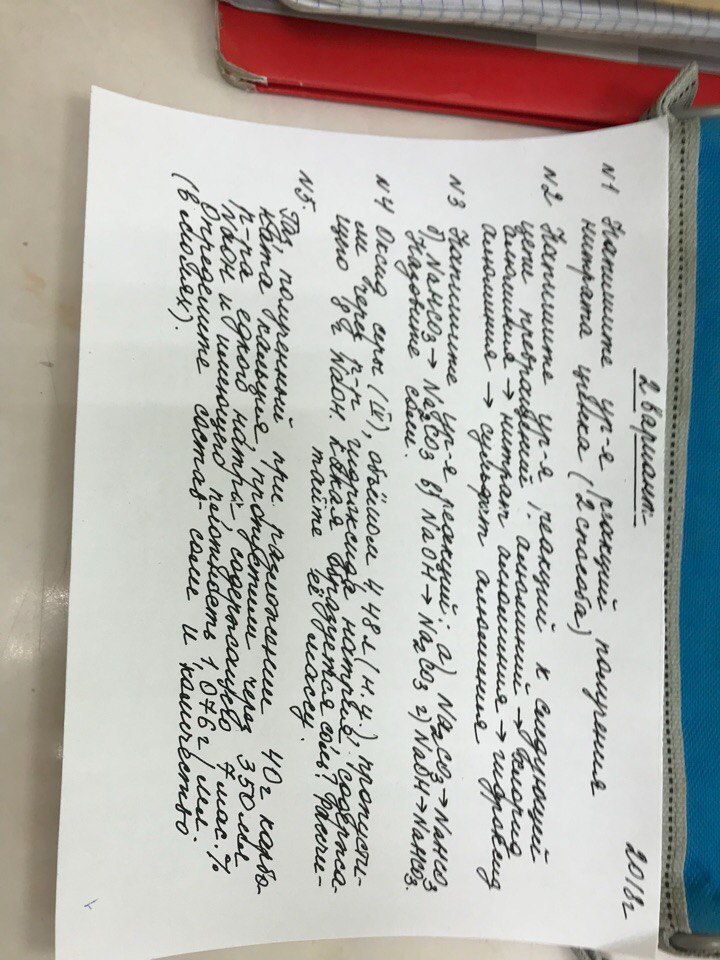 2 вариант.
2018г
N1 Напишите ур-я реакций получения
нитрата цинка (2 способа)
N2 Напишите ур-я реакций к следующей
цепи превращений: алюминий →
алюминия → нитрат алюминия → гидроксид
алюминия → сульфат алюминия
N3 Напишите ур-я реакций: а) Na2CO3 → NaHCO3
б) NaHCO3 → Na2CO3 в) NaOH → Na2CO3 г) NaOH → NaHCO3.
Назовите соли.
N4 Оксид серы (IV), объёмом 4,48л (н.у.) пропусти-
ли через р-р гидроксида натрия, содержа-
щую NaOH. Какая образуется соль? Рассчи-
тайте её массу.
N5.
Газ, полученный при разложении 40г карбо-
ната кальция, пропустили через 350мл
р-ра едкого натра, содержащего 7 мас. %
NaOH и имеющего плотность 1,076 г/мл.
Определите состав соли и количество.
(в молях).